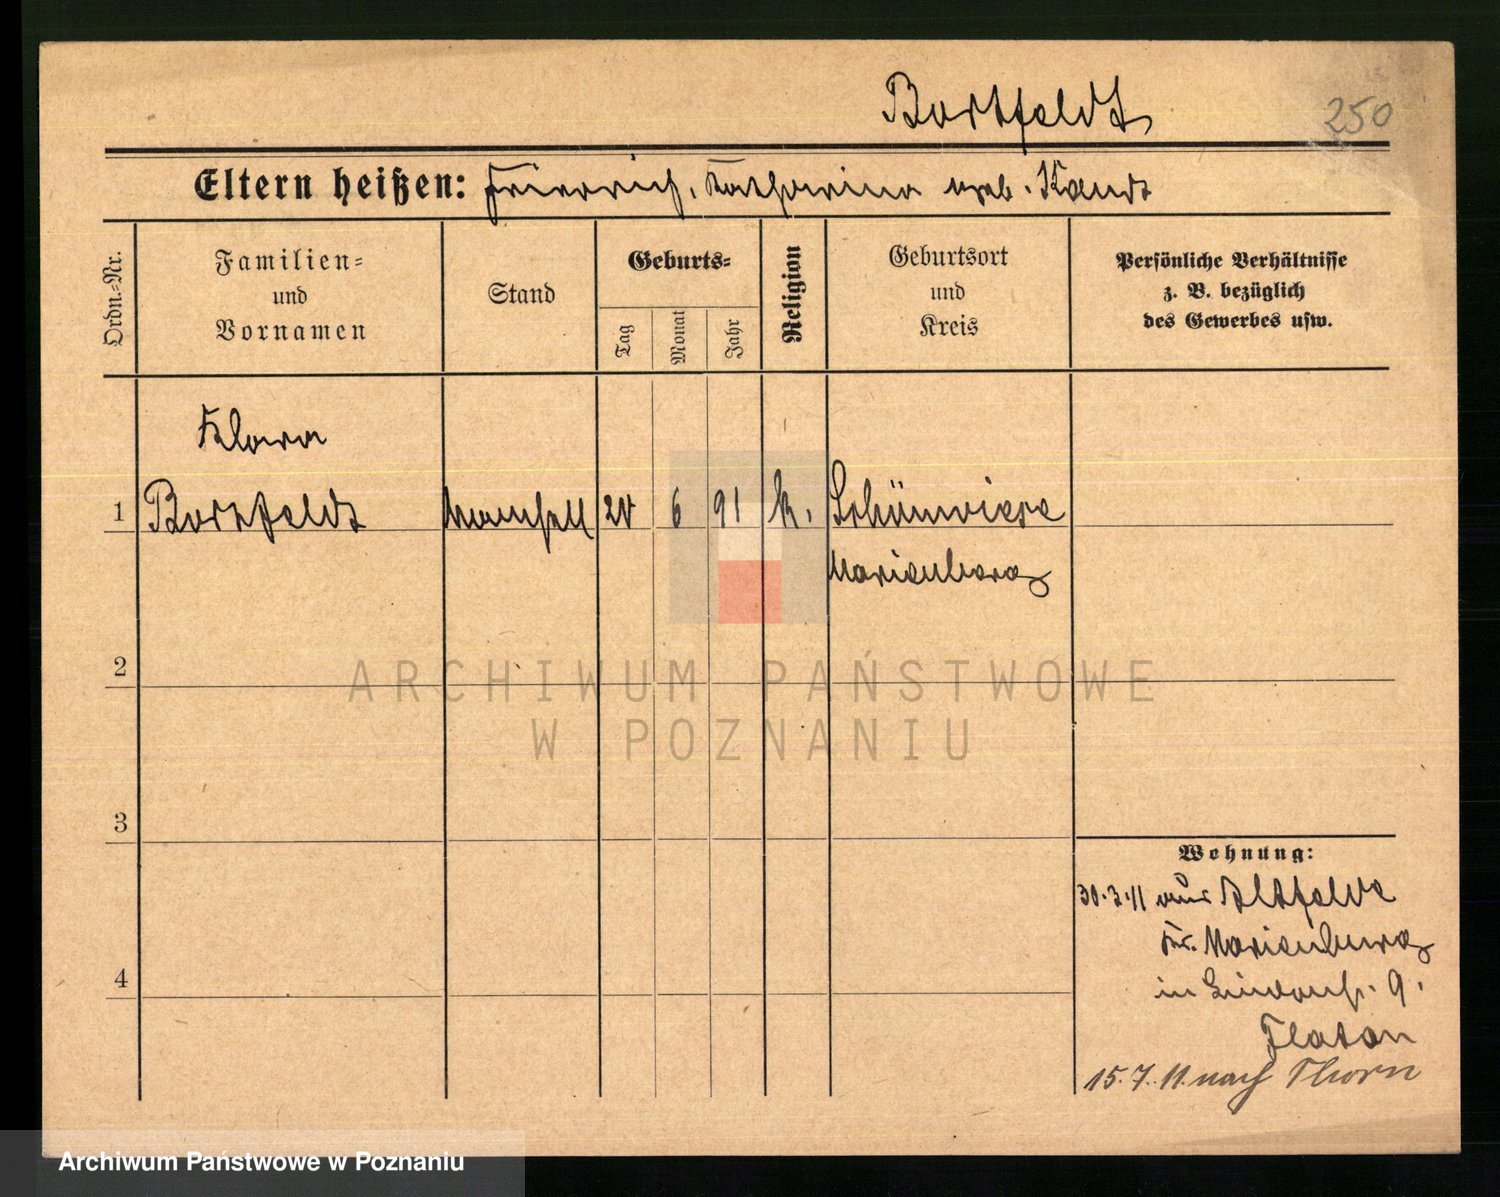 Bortfeldt
250
Eltern heißen: Friedrich, Katharina geb. Kandt
Ordn.-Nr.
Familien-
und
Vornamen
Stand
Geburts-
Tag
Monat
Jahr
Religion
Geburtsort
und
Kreis
Persönliche Verhältnisse
z. B. bezüglich
des Gewerbes usw.
Klara
1 Bortfeldt Mamsell 20 6 91 k. Schönwiese
Marienburg
2
3
4
Wohnung:
30.3.11 aus Altfelde
Kr. Marienburg
in Lindenstr. 9.
15.7.11 nach Thorn
ARCHIWUM PAŃSTWOWE
W POZNANIU
Archiwum Państwowe w Poznaniu